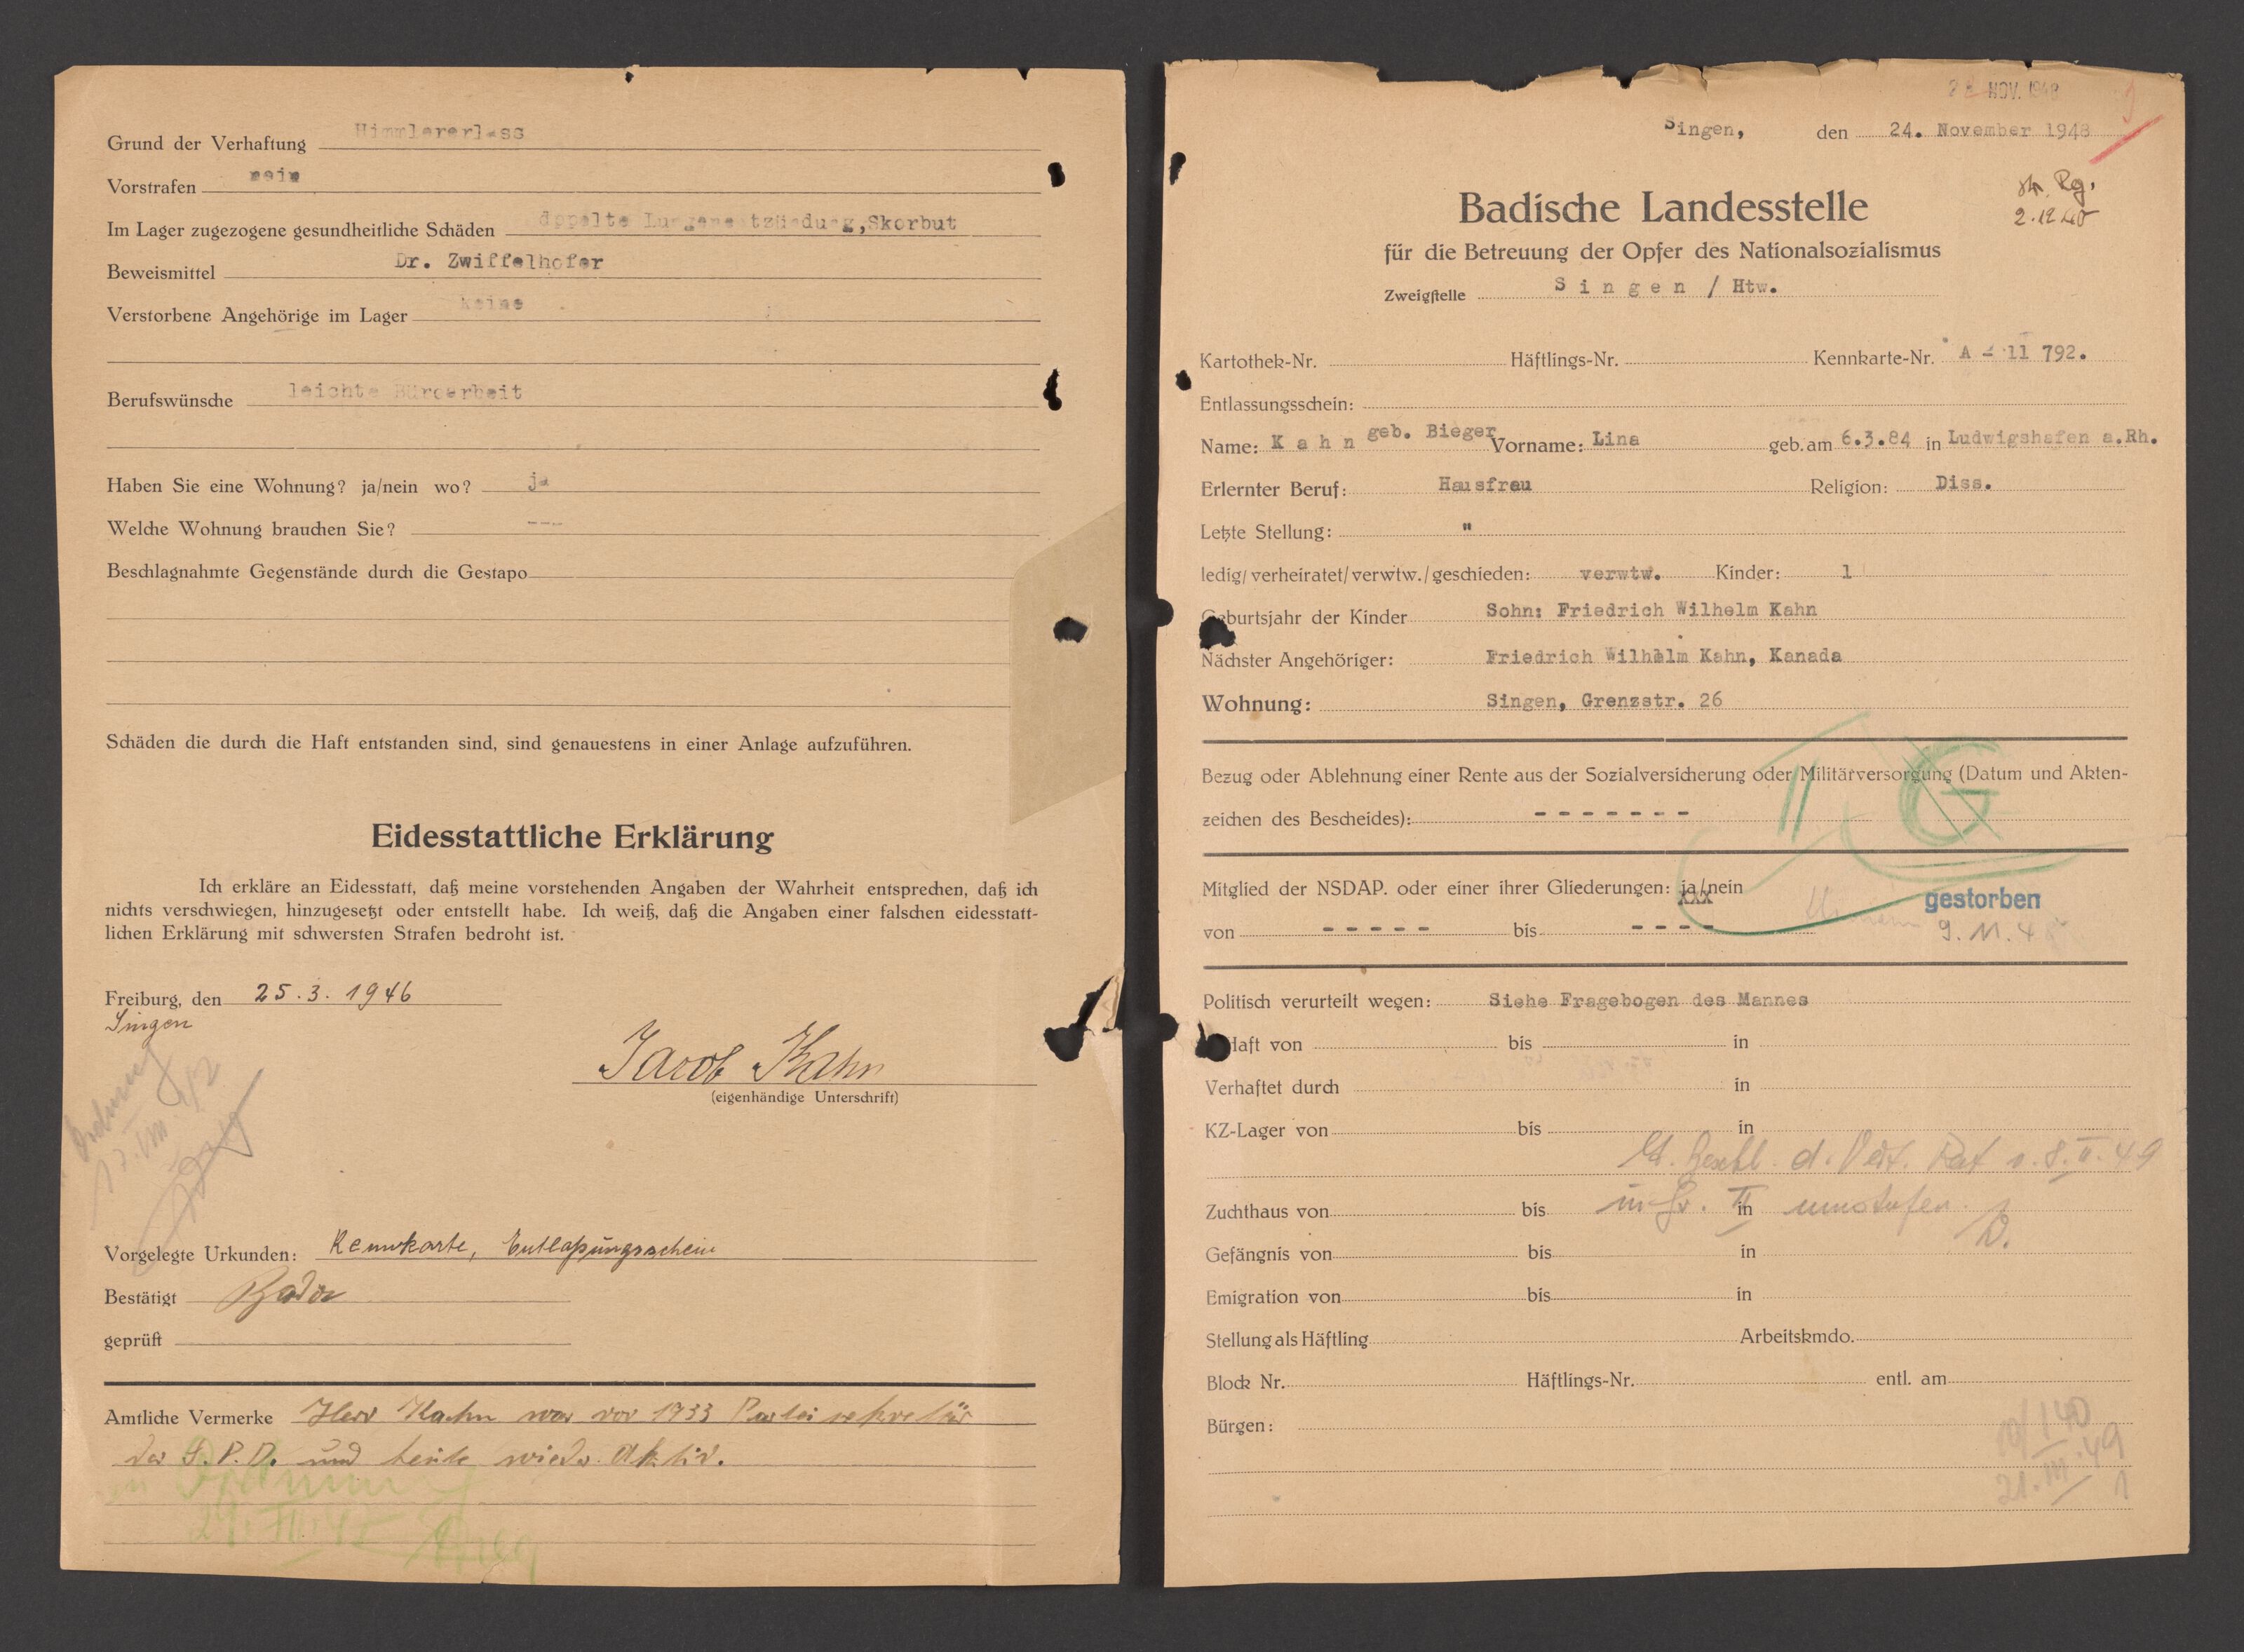 Grund der Verhaftung Himmlererlass
Vorstrafen nein
Im Lager zugezogene gesundheitliche Schäden doppelte Lungenentzündung,Skorbut
Beweismittel Dr. Zwiffelhofer
Verstorbene Angehörige im Lager keine
Berufswünsche leichte Büroarbeit
Haben Sie eine Wohnung? ja/nein wo? ja
Welche Wohnung brauchen Sie? ---
Beschlagnahmte Gegenstände durch die Gestapo
Schäden die durch die Haft entstanden sind, sind genauestens in einer Anlage aufzuführen.
Eidesstattliche Erklärung
Ich erkläre an Eidesstatt, daß meine vorstehenden Angaben der Wahrheit entsprechen, daß ich
nichts verschwiegen, hinzugesetzt oder entstellt habe. Ich weiß, daß die Angaben einer falschen eidesstatt-
lichen Erklärung mit schwersten Strafen bedroht ist.
Freiburg, den 25.3.1946
Singen
Jacob Kahn
(eigenhändige Unterschrift)
Vorgelegte Urkunden: Kennkarte, Entlaßungsschein
Bestätigt
geprüft
Amtliche Vermerke Herr Kahn war vor 1933 Parteisekretär
der S.P.D. und heute wieder Aktiv.
NOV. 1948
Singen, den 24. November 1948
Badische Landesstelle
für die Betreuung der Opfer des Nationalsozialismus
Zweigstelle Singen / Htw.
Kartothek-Nr. Häftlings-Nr. Kennkarte-Nr. A - 11 792.
Entlassungsschein:
Name: Kahn geb. Bieger Vorname: Lina geb. am 6.3.84 in Ludwigshafen a.Rh.
Erlernter Beruf: Hausfrau Religion: Diss.
Letzte Stellung: "
ledig/verheiratet/verwtw./geschieden: verwtw. Kinder: 1
Geburtsjahr der Kinder Sohn: Friedrich Wilhelm Kahn
Nächster Angehöriger: Friedrich Wilhelm Kahn, Kanada
Wohnung: Singen, Grenzstr. 26
Bezug oder Ablehnung einer Rente aus der Sozialversicherung oder Militärversorgung (Datum und Akten-
zeichen des Bescheides): - - - - - - -
II G
Mitglied der NSDAP. oder einer ihrer Gliederungen: ja/nein
gestorben
von - - - - - bis - - - -
9.11.4
Politisch verurteilt wegen: Siehe Fragebogen des Mannes
Haft von bis in
Verhaftet durch in
KZ-Lager von bis in
Zuchthaus von bis in
in Gr. II umstufen.
Gefängnis von bis in
Emigration von bis in
Stellung als Häftling Arbeitskmdo.
Block Nr. Häftlings-Nr. entl. am
Bürgen: